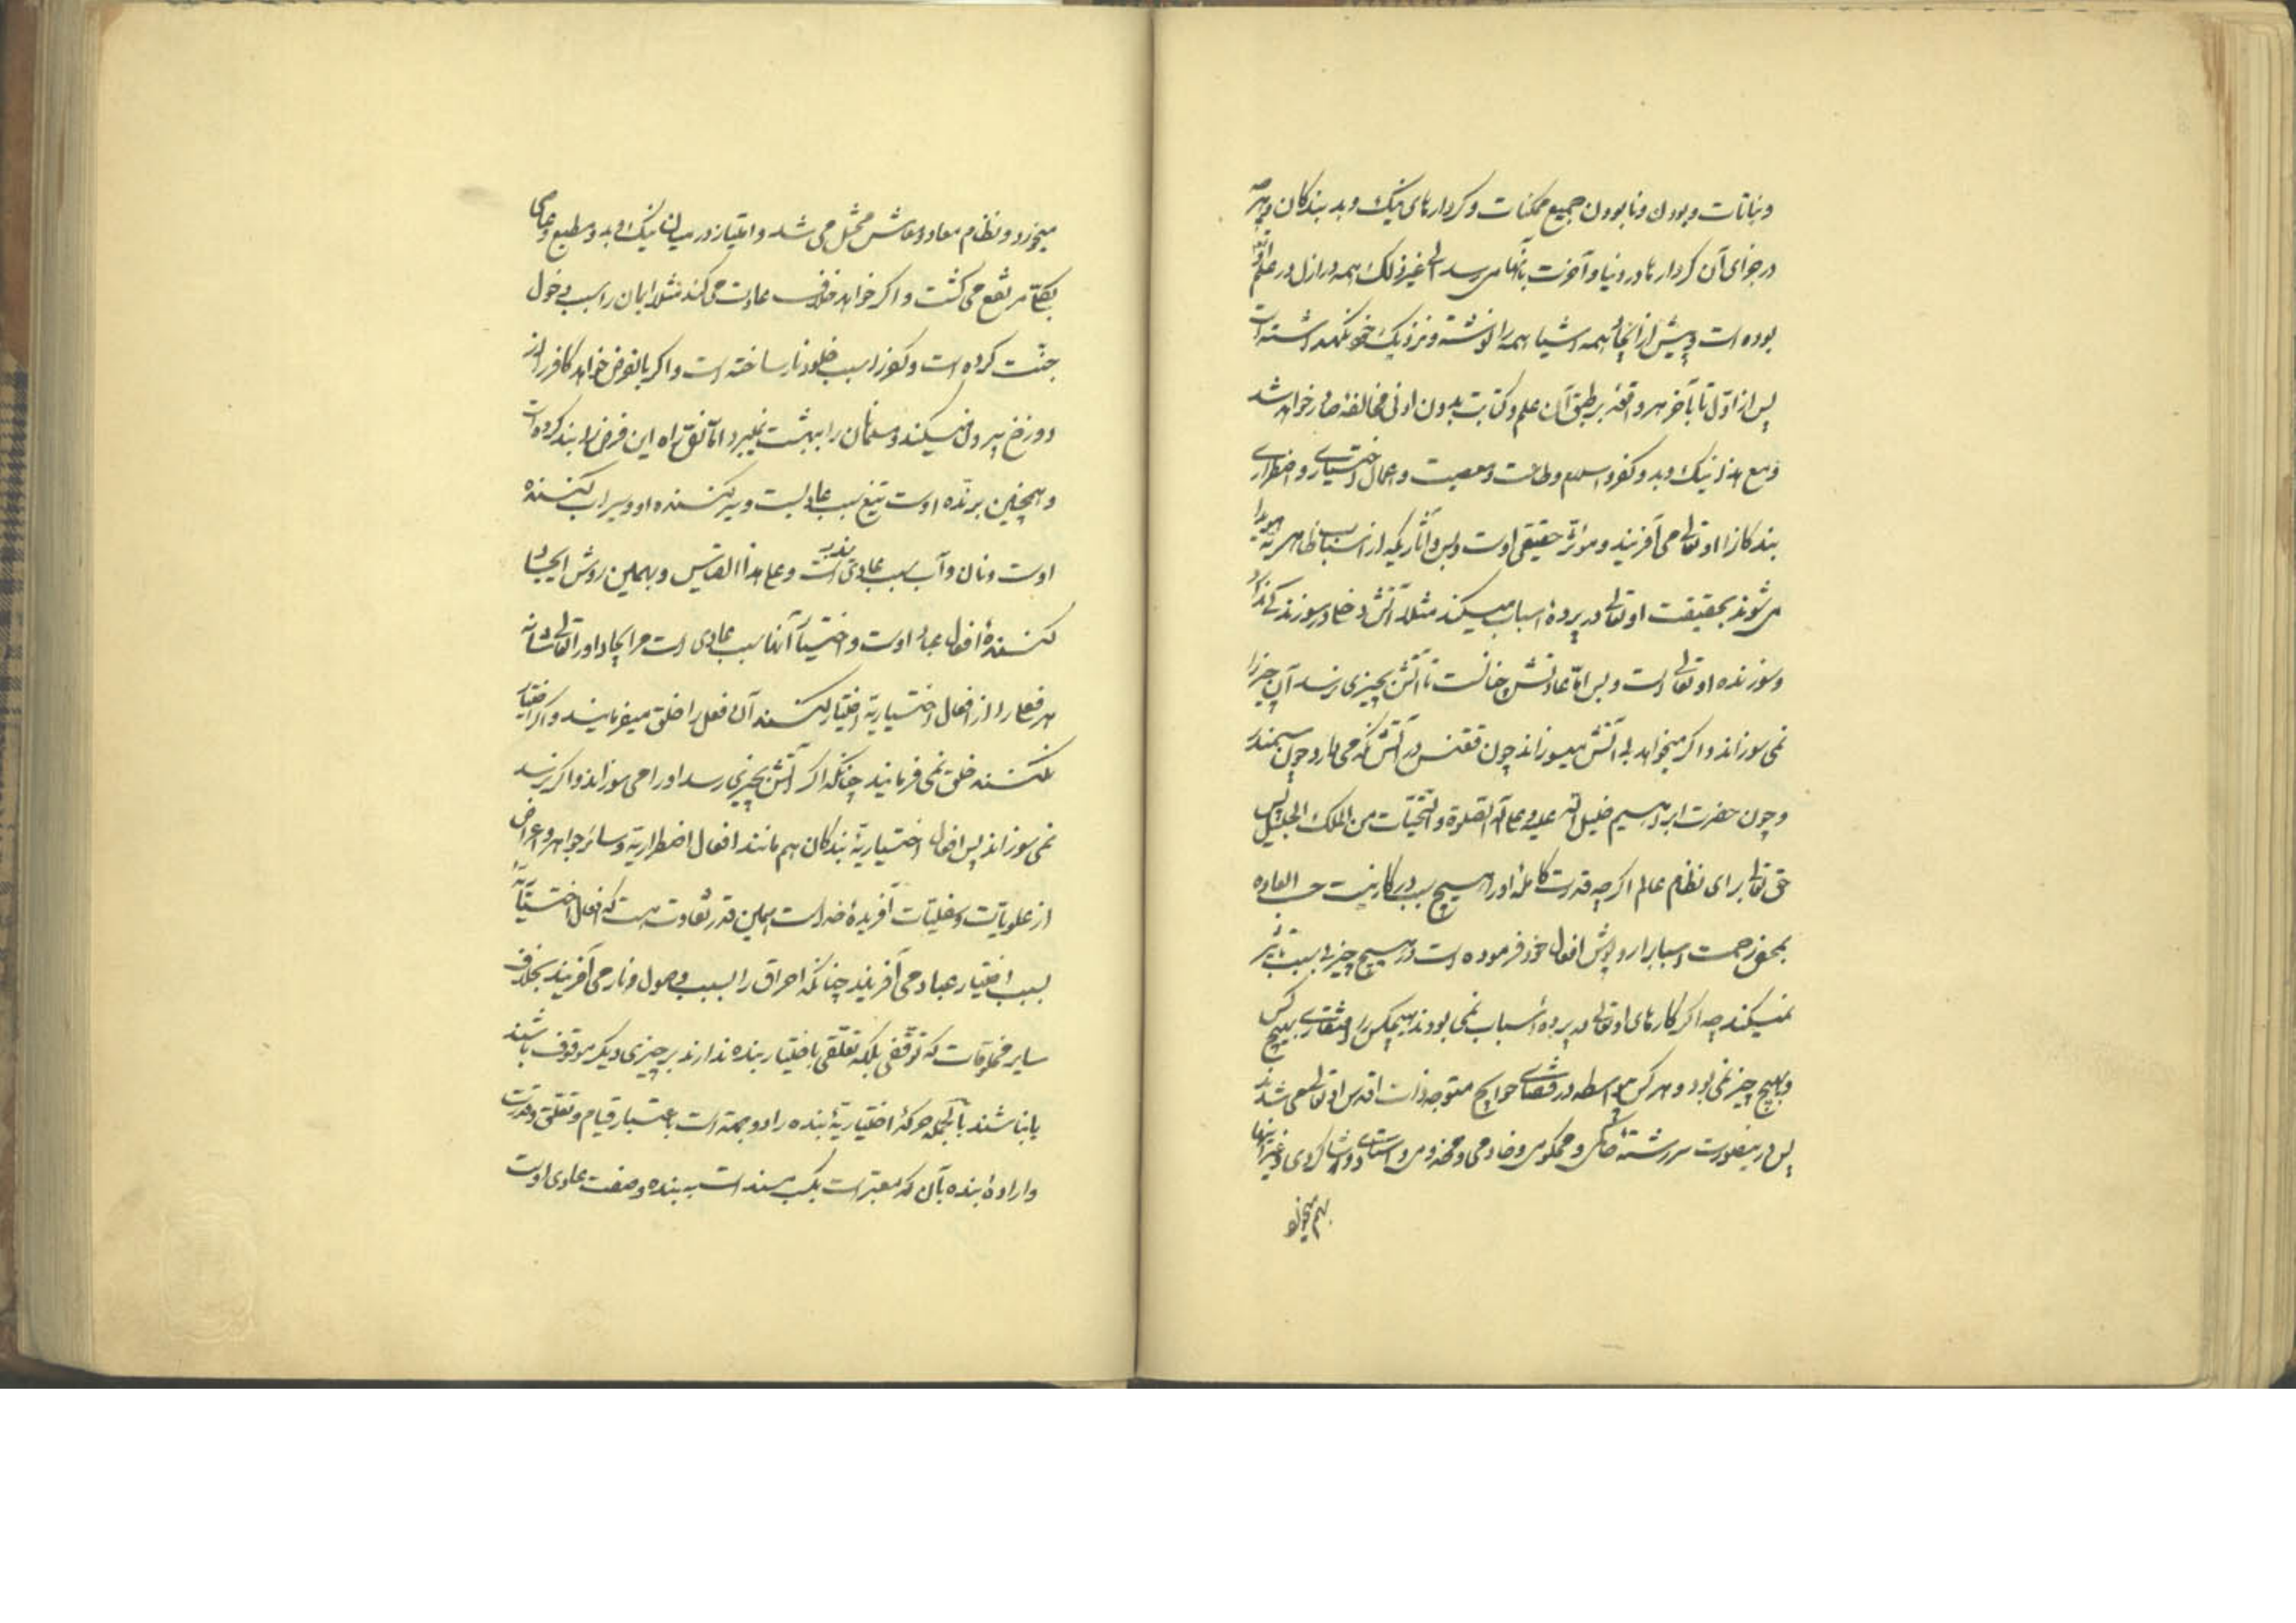 ونباتات وبودن ونابودن جمیع ممکنات وکردارهای نیک وبد بندکان وهرچه
در جزای آن کردارها در دنیا وآخرت بآنها می رسد الی غیر ذلک همه در ازل در علم او تع
بوده است وپیش از ایجاد همه اشیا همه را نوشته ونزدیک خود نکهداشته است
پس از اول تا بآخر هر واقعه بر طبق آن علم وکتابت بدون ادنی مخالفه صادر خواهد شد
ومع هذا نیک وبد وکفر واسلام وطاعت ومعصیت واعمال اختیاری واضطراری
بندکانرا او تعالی می آفریند ومؤثر حقیقی اوست وبس وآثاریکه از اسباب ظاهریه هویدا
می شوند بحقیقت او تعالی در پردهٔ اسباب میکند مثلا آتش
وسوزنده او تعالی است وبس اما عادتش چنانست تا آتش بچیزی نرسد آن چیز را
نمی سوزاند واکر میخواهد بی آتش میسوزاند چون ققنس در آتش نکه می دارد چون سمندر
وچون حضرت ابراهیم خلیل الله علیه وعلی آله الصلوة والتحیات من الملک الجلیل پس
حق تعالی برای نظام عالم اکرچه قدرت کاملهٔ اورا هیچ سبب در کار نیست حسب العاده
بمحض رحمت اسباب را روپوش افعال خود فرموده است در هیچ چیز بی سبب تأثیر
نمیکند چه اکر کارهای او تعالی در پردهٔ اسباب نمی بودند هیچکس را افتقاری بهیچ کس
وبهیچ چیز نمی بود وهر کس بیواسطه در قضای حوایج متوجه ذات اقدس او تعالی می شدند
پس درینصورت سررشتهٔ حاکمی ومحکومی وخادمی ومخدومی واستادی وشاکردی وغیر اینها
بهم میخورد
میخورد ونظام معاد ومعاش مختل می شد وامتیاز در میان نیک وبد ومطیع وعاصی
بکلی مرتفع می کشت واکر خواهد خلاف عادت می کند مثلا ایمان را سبب دخول
جنت کرده است وکفر را سبب خلود نار ساخته است واکر بالفرض خواهد کافر را از
دوزخ بیرون میکند ومسلمان را ببهشت نمیبرد اما راه این فرض را بند کرده است
وهمچنین برنده اوست تیغ سبب عادیست وسیر کننده او وسیراب کننده
اوست ونان وآب سبب عادی است وعلی هذا القیاس وبهمین روش ایجاد
کنندهٔ افعال عباد اوست واختیار آنها سبب عادی است مر ایجاد اورا تعالی شأنه
هر فعلی را از افعال اختیاریه اختیار کنند آن فعل را خلق میفرمایند واکر اختیار
نکنند خلق نمی فرمایند چنانکه اکر آتش بچیزی رسد اورا می سوزاند واکر نرسد
نمی سوزاند پس افعال اختیاریهٔ بندکان هم مانند افعال اضطراریه وسائر جواهر واعراض
از علویات وسفلیات آفریدهٔ خداست همین قدر تفاوت هست که افعال اختیاریه را
بسبب اختیار عباد می آفریند چنانکه احراق را بسبب وصول نار می آفریند بخلاف
سایر مخلوقات که توقفی بلکه تعلقی باختیار بنده ندارند بر چیزی دیکر موقوف باشند
یا نباشند بالجمله حرکهٔ اختیاریهٔ بنده را دو جهت است باعتبار قیام وتعلق وقدرت
وارادهٔ بنده بآن که معتبر است بکسب مسند است به بنده وصفت عادی اوست